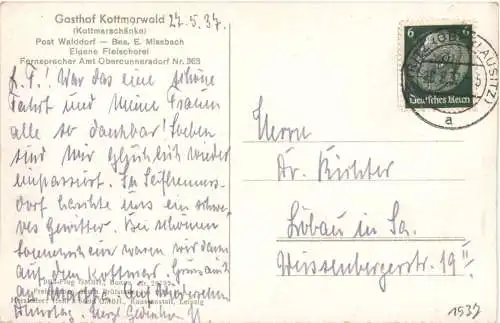 Gasthof Kottmarwald 27.5.37.
(Kottmarschänke)
Post Walddorf — Bes. E. Missbach
Eigene Fleischerei
Fernsprecher Amt Obercunnersdorf Nr. 363
L. F.! War das eine schöne
Fahrt und meine Frauen
alle so dankbar! Soeben
sind wir glücklich wieder
einpassiert. In Seifhenners-
dorf haschte uns ein schwe-
res Gewitter. Bei schönem
Sonnenschein waren wir dann
auf dem Kottmar.
Auf Wiedersehen
6
Deutsches Reich
(LAUSITZ)
a
Herrn
Dr. Richter
Löbau in Sa.
19 II
1537